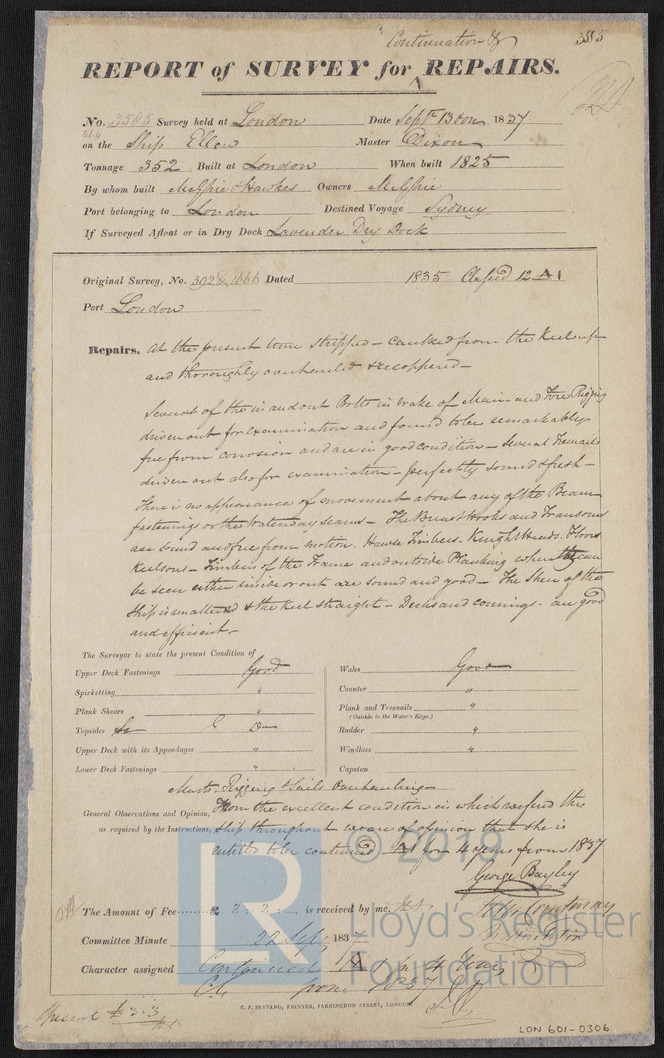 Continuation &
3585
REPORT of SURVEY for REPAIRS.
No. 3585 Survey held at London Date Septr 13 1837
on the Ship Ellen Master Dixon
Tonnage 352 Built at London When built 1825
By whom built McGhie & Hawkes Owners McGhie
Port belonging to London Destined Voyage Sydney
If Surveyed Afloat or in Dry Dock Lavender Dry Dock
Original Survey, No. Dated 1835 Classed 12 A1
Port London
Repairs. At the present time stripped - caulked from the Keel up
and thoroughly overhauled & recoppered -
Several of the in and out Bolts in wake of Main and Fore Rigging
driven out for examination and found to be remarkably
free from corrosion and are in good condition - Several Treenails
driven out also for examination - perfectly sound & fresh -
There is no appearance of movement about any of the Beam
fastenings or the Waterway seams - The Breast Hooks and Transoms
are sound and free from motion. Hawse Timbers. Knight Heads. Floors
Keelsons - Timbers of the Frame and outside Planking where they can
be seen either inside or out are sound and good - The Sheer of the
Ship is unaltered & the Keel straight - Decks and comings - are good
and efficient -
The Surveyor to state the present Condition of
Upper Deck Fastenings Good
Spirketting "
Plank Shears "
Topsides Do
Upper Deck with its Appendages "
Lower Deck Fastenings "
Wales Good
Counter "
Plank and Treenails "
(Outside to the Water's Edge.)
Rudder "
Windlass "
Capstan
Masts, Rigging & Sails Overhauling -
General Observations and Opinion, From the excellent condition in which we find this
as required by the Instructions, Ship throughout we are of opinion that she is
entitled to be continued A1 for 4 Years from 1837
George Bayley
The Amount of Fee £ 2. 2. is received by me,
Committee Minute 22 Sep 1837
Character assigned Continued A1 for 4 Years
from 1837
C. F. SEYFANG, PRINTER, FARRINGDON STREET, LONDON.
£ 3.3
LON 601-0306
© 2019
Lloyd's Register
Foundation
LR